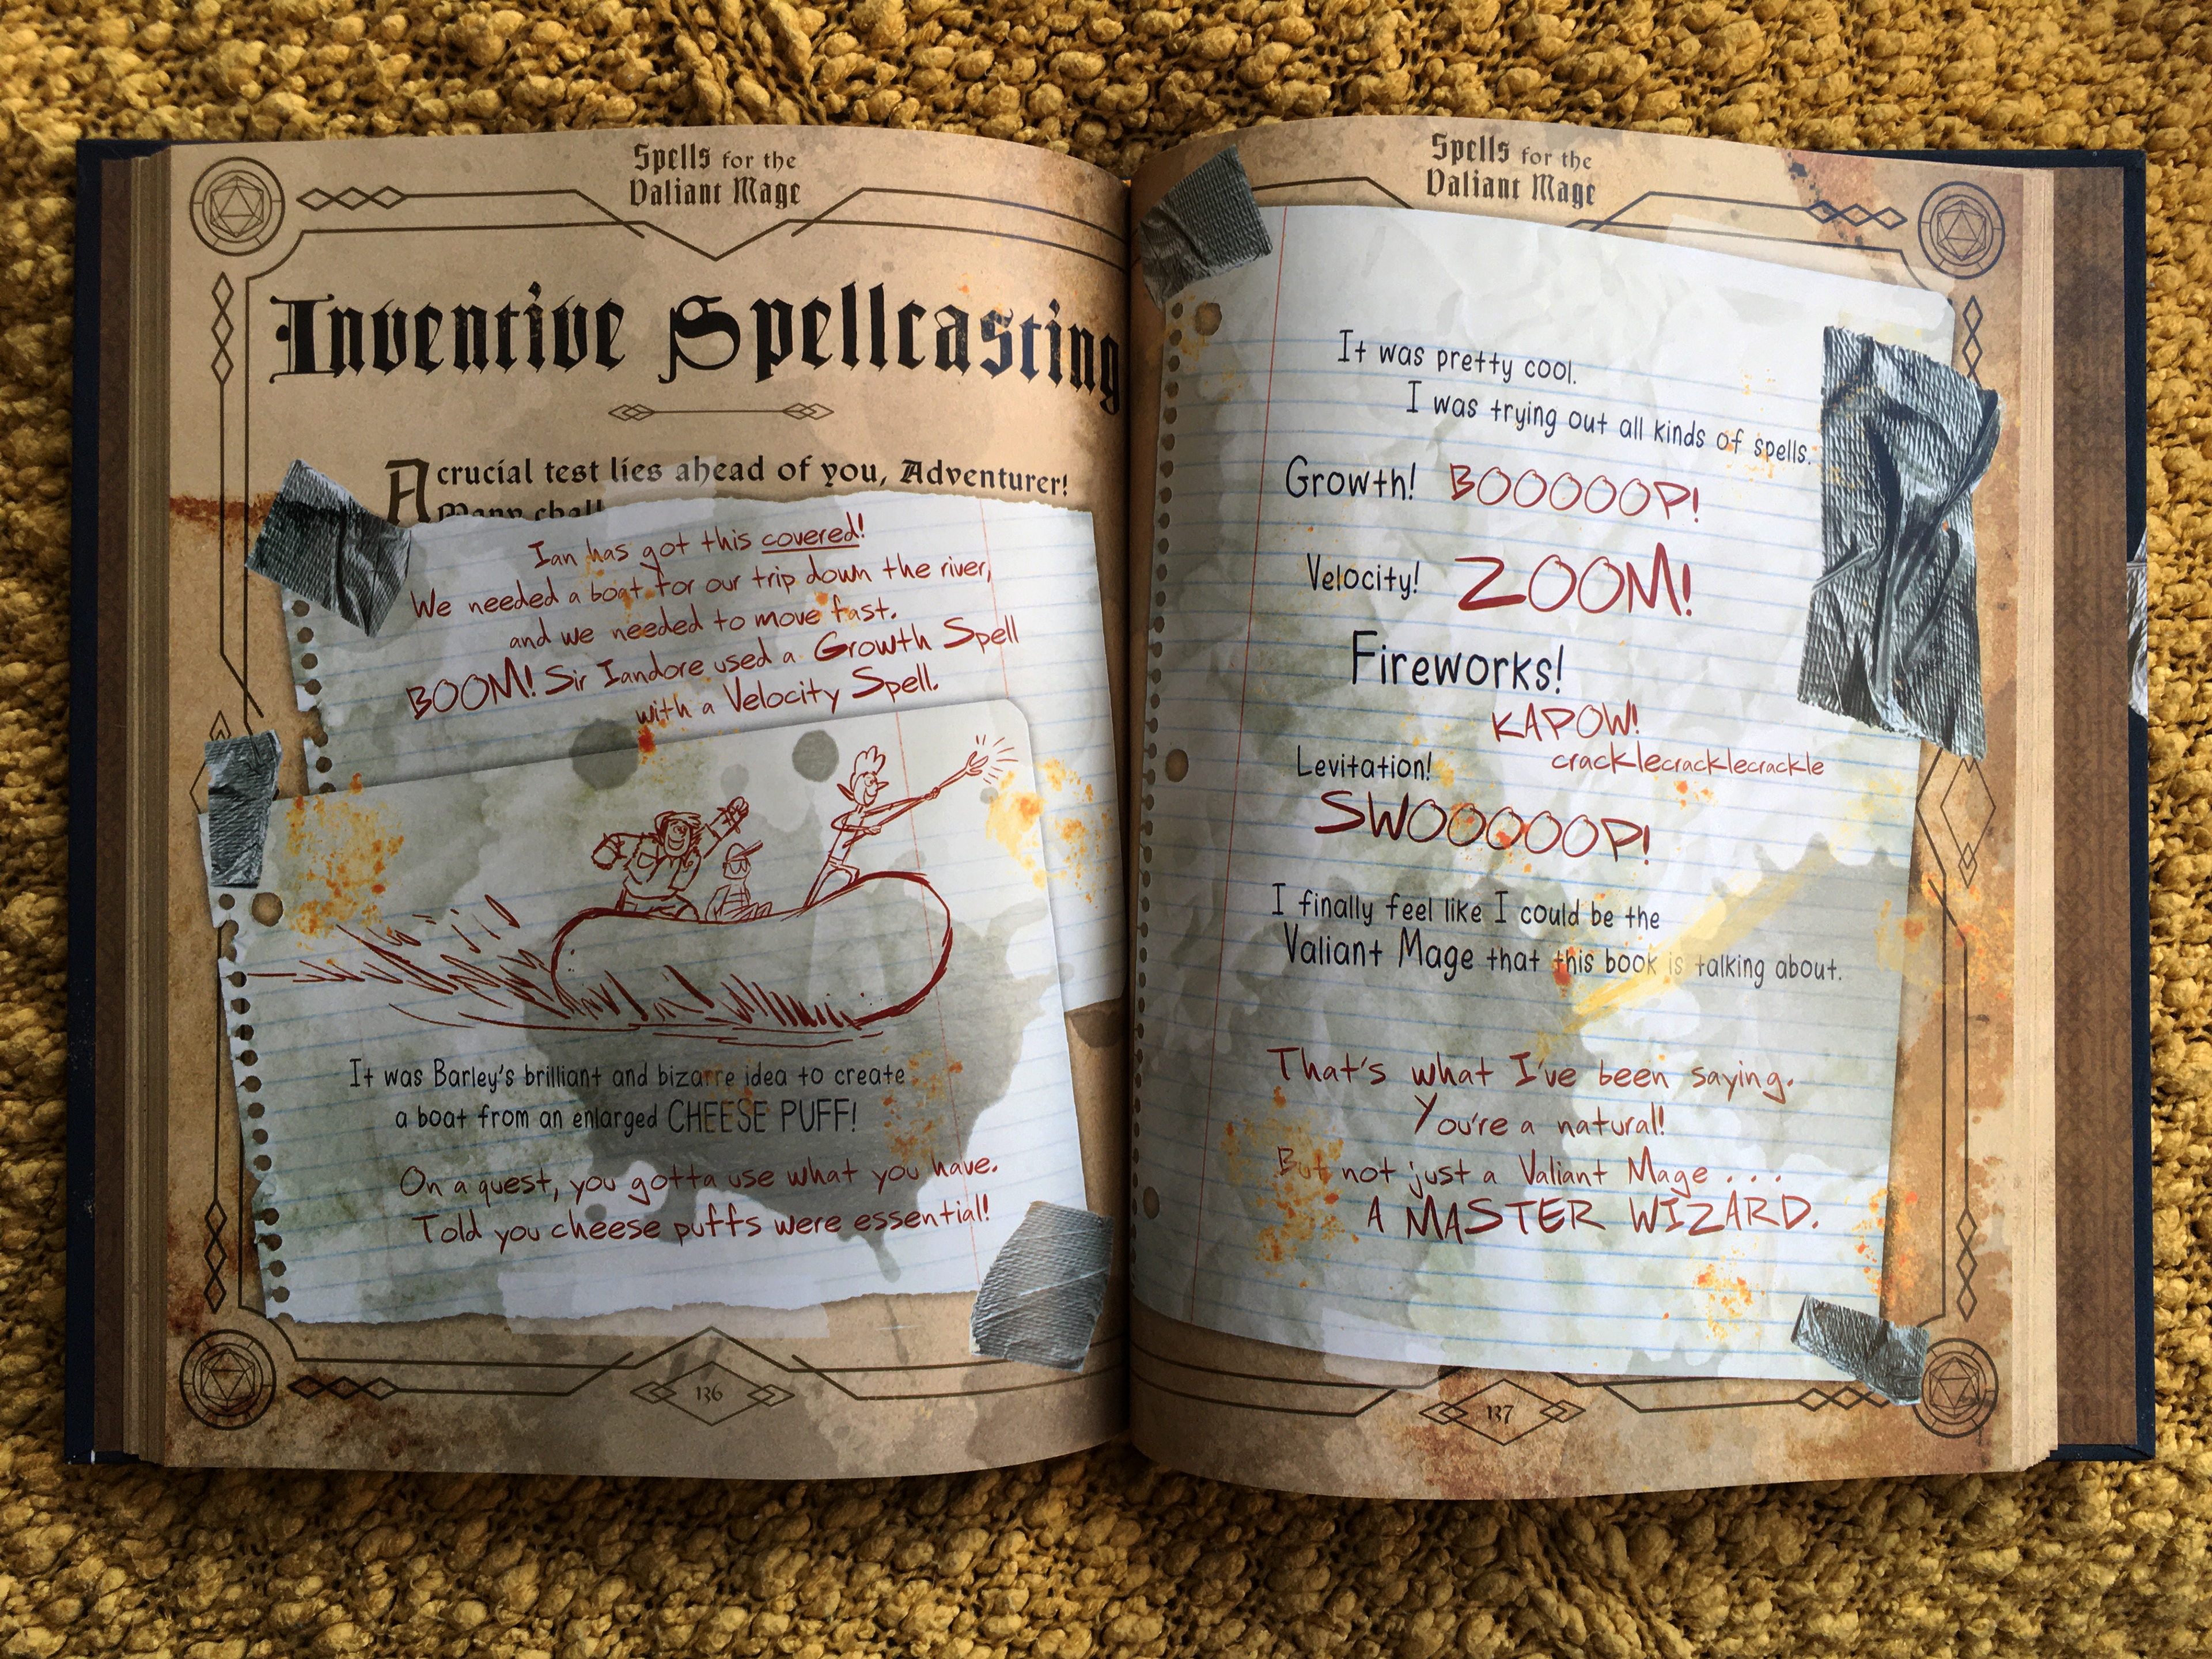 Spells for the
Valiant Mage
Inventive Spellcasting
A crucial test lies ahead of you, Adventurer!
Many chall
Ian has got this covered!
We needed a boat for our trip down the river,
and we needed to move fast.
BOOM! Sir Iandore used a Growth Spell
with a Velocity Spell.
It was Barley's brilliant and bizarre idea to create
a boat from an enlarged CHEESE PUFF!
On a quest, you gotta use what you have.
Told you cheese puffs were essential!
136
Spells for the
Valiant Mage
It was pretty cool.
I was trying out all kinds of spells.
Growth! BOOOOOP!
Velocity! ZOOM!
Fireworks!
KAPOW!
cracklecracklecrackle
Levitation!
SWOOOOOP!
I finally feel like I could be the
Valiant Mage that this book is talking about.
That's what I've been saying.
You're a natural!
But not just a Valiant Mage . . .
A MASTER WIZARD.
137